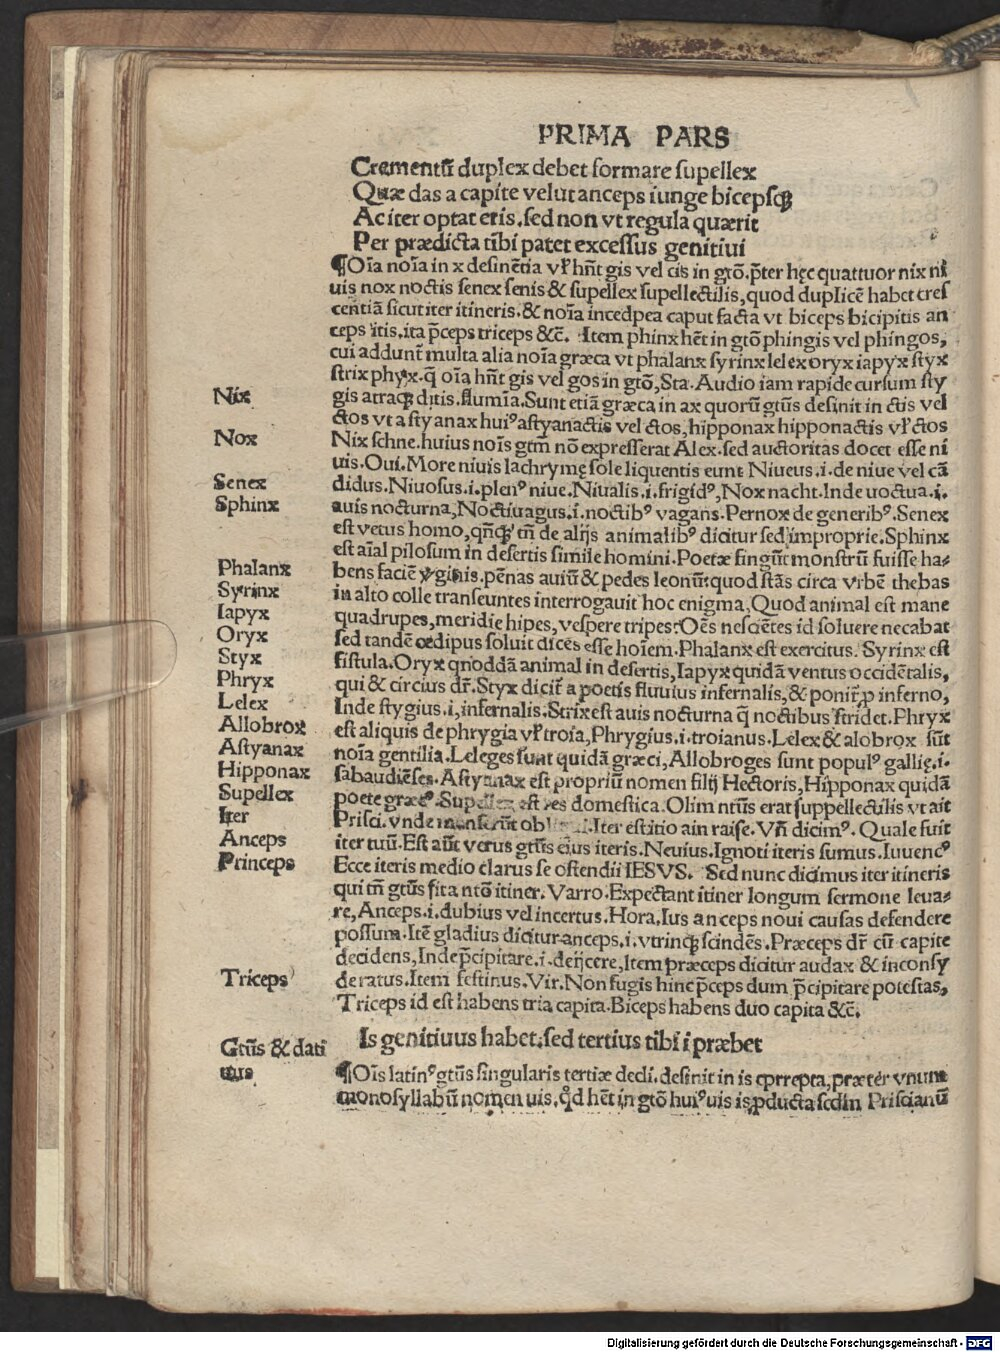 PRIMA PARS
Crementũ duplex debet formare ſupellex
Quæ das a capite velut anceps iunge bicepſqꝫ
Ac iter optat eris.ſed non vt regula quærit
Per prædicta tibi patet exceſſus genitiui
¶Oĩa noĩa in x deſinẽtia vꝉ hñt gis vel cis in gtõ.p̃ter hęc quattuor nix ni
uis nox noctis ſenex ſenis & ſupellex ſupellectilis,quod duplicẽ habet creſ
centiã ſicut iter itineris.& noĩa incedpea caput facta vt biceps bicipitis an
ceps itis.ita p̃ceps triceps &c̃. Item phinx hẽt in gtõ phingis vel phingos,
cui addunt̃ multa alia noĩa græca vt phalanx ſyrinx lelex oryx iapyx ſtyx
ſtrix phyx.q̃ oĩa hñt gis vel gos in gtõ,Sta.Audio iam rapide curſum ſty
Nix
gis atraqꝫ ditis.flumĩa.Sunt etiã græca in ax quorũ gtũs deſinit in ctis vel
ctos vt aſtyanax huiꝰ aſtyanactis vel ctos,hipponax hipponactis vꝉ ctos
Nox
Nix ſchne.huius noĩs gtm̃ nõ expreſſerat Alex.ſed auctoritas docet eſſe ni
uis.Oui.More niuis lachrymę ſole liquentis eunt Niueus.i.de niue vel cã
Senex
didus.Niuoſus.i.plenꝰ niue.Niualis.i.frigidꝰ,Nox nacht.Inde uoctua.i.
Sphinx
auis nocturna,Noctiuagus.i.noctibꝰ vagans.Pernox de generibꝰ.Senex
eſt vetus homo,qñqꝫ tm̃ de alijs animalibꝰ dicitur ſed improprie.Sphinx
eſt aĩal piloſum in deſertis ſimile homini.Poetæ fingũt monſtrũ fuiſſe ha-
Phalanx
bens faciẽ virginis.pẽnas auiũ & pedes leonũ:quod ſtãs circa vrbẽ thebas
Syrinx
in alto colle tranſeuntes interrogauit hoc enigma,Quod animal eſt mane
Iapyx
quadrupes,meridie hipes,veſpere tripes:Oẽs neſciẽtes id ſoluere necabat
Oryx
ſed tandẽ œdipus ſoluit dicẽs eſſe hoĩem.Phalanx eſt exercitus. Syrinx eſt
Styx
fiſtula.Oryx quoddã animal in deſertis,Iapyx quidã ventus occidẽtalis,
Phryx
qui & circius dr̃.Styx dicit̃ a poetis fluuius infernalis,& ponit̃ ꝓ inferno,
Lelex
Inde ſtygius.i,infernalis.Strix eſt auis nocturna q̃ noctibus ſtridet.Phryx
Allobrox
eſt aliquis de phrygia vꝉ troia,Phrygius.i.troianus.Lelex & alobrox ſũt
Aſtyanax
noĩa gentilia.Leleges ſunt quidã græci,Allobroges ſunt populꝰ gallię.i.
Hipponax
ſabaudiẽſes.Aſtyanax eſt propriũ nomen filij Hectoris,Hipponax quidã
Supellex
poete græcꝰ.Supellex eſt res domeſtica.Olim ntũs erat ſuppellectilis vt ait
Iter
Priſci.vnde manſerũt Iter eſt itio ain raiſe.Vñ dicimꝰ. Quale fuit
Anceps
iter tuũ.Eſt aũt verus gtũs eius iteris.Neuius.Ignoti iteris ſumus.Iuuencꝰ
Princeps
Ecce iteris medio clarus ſe oſtendit IESVS. Sed nunc dicimus iter itineris
qui tñ gtũs fit a ntõ itiner.Varro.Expectant itiner longum ſermone leua-
re,Anceps.i.dubius vel incertus.Hora.Ius anceps noui cauſas defendere
poſſum.Itẽ gladius dicitur anceps.i.vtrinqꝫ ſcindẽs.Præceps dr̃ cũ capite
decidens,Inde p̃cipitare.i.deijcere,Item præceps dicitur audax & inconſy
Triceps
deratus.Item feſtinus.Vir.Non fugis hinc p̃ceps dum p̃cipitare poteſtas,
Triceps id eſt habens tria capita.Biceps habens duo capita &c̃.
Is genitiuus habet.ſed tertius tibi i præbet
Gtũs & dati
uus
¶Oĩs latinꝰ gtũs ſingularis tertiæ decli.deſinit in is correpta,præter vnum
monoſyllabũ nomen uis.qđ hẽt in gtõ huiꝰ uis is ꝓducta ſcđm Priſcianũ
Digitalisierung gefördert durch die Deutsche Forschungsgemeinschaft - DFG